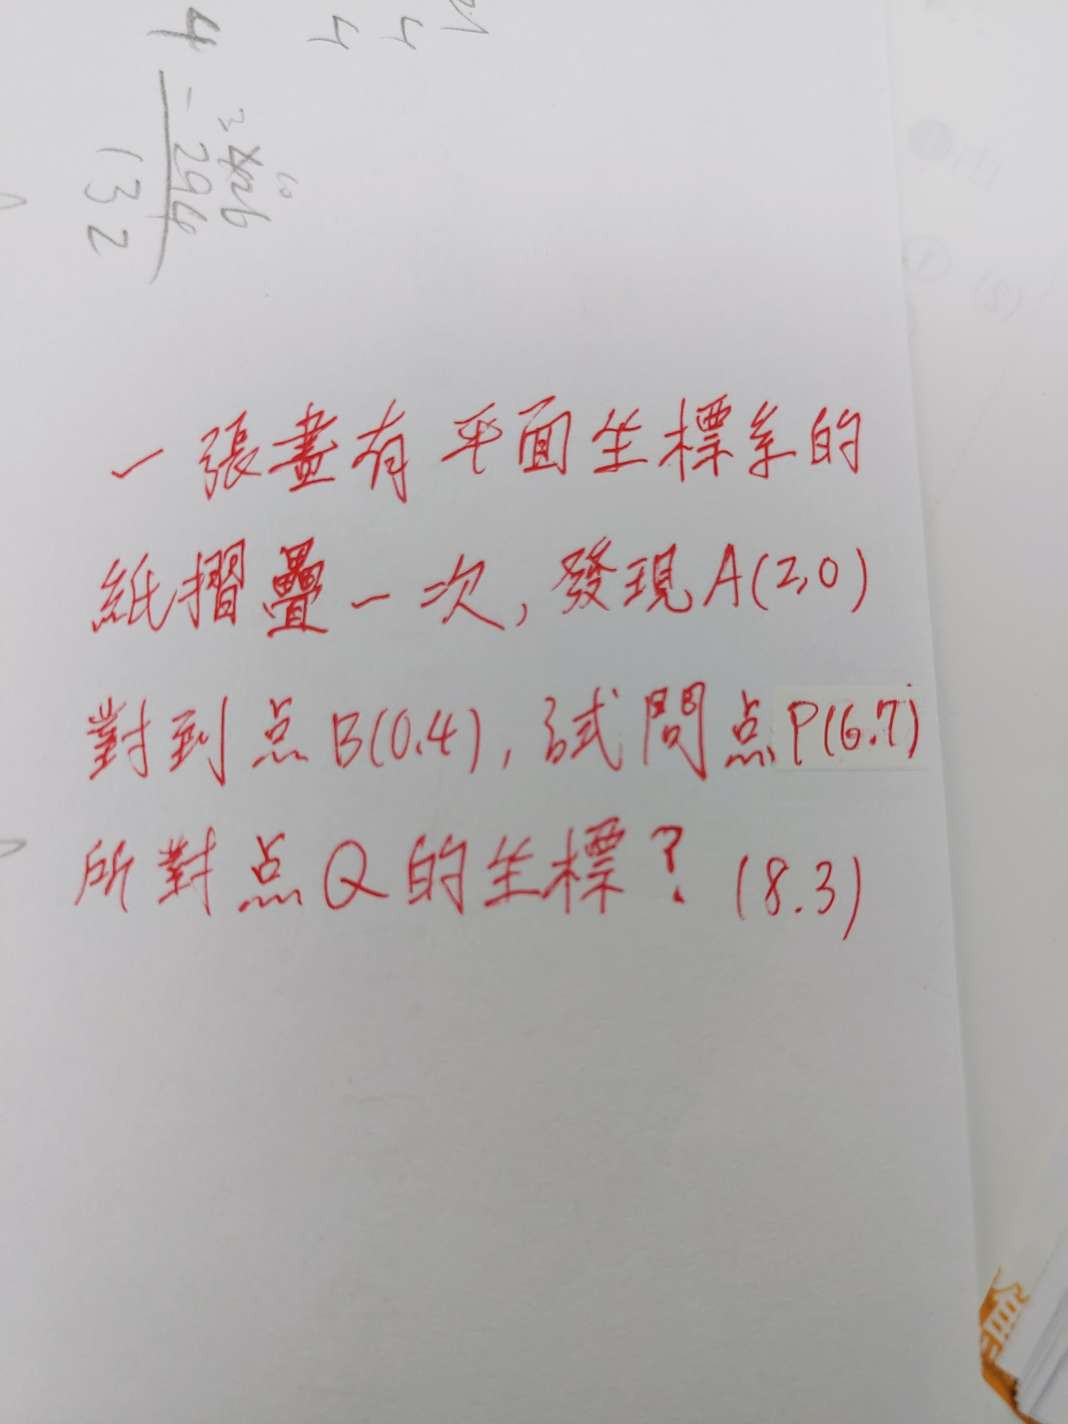 4
- 294
132
一張畫有平面坐標系的
紙摺疊一次,發現A(2,0)
對到点B(0.4),試問点P(6.7)
所對点Q的坐標?(8.3)